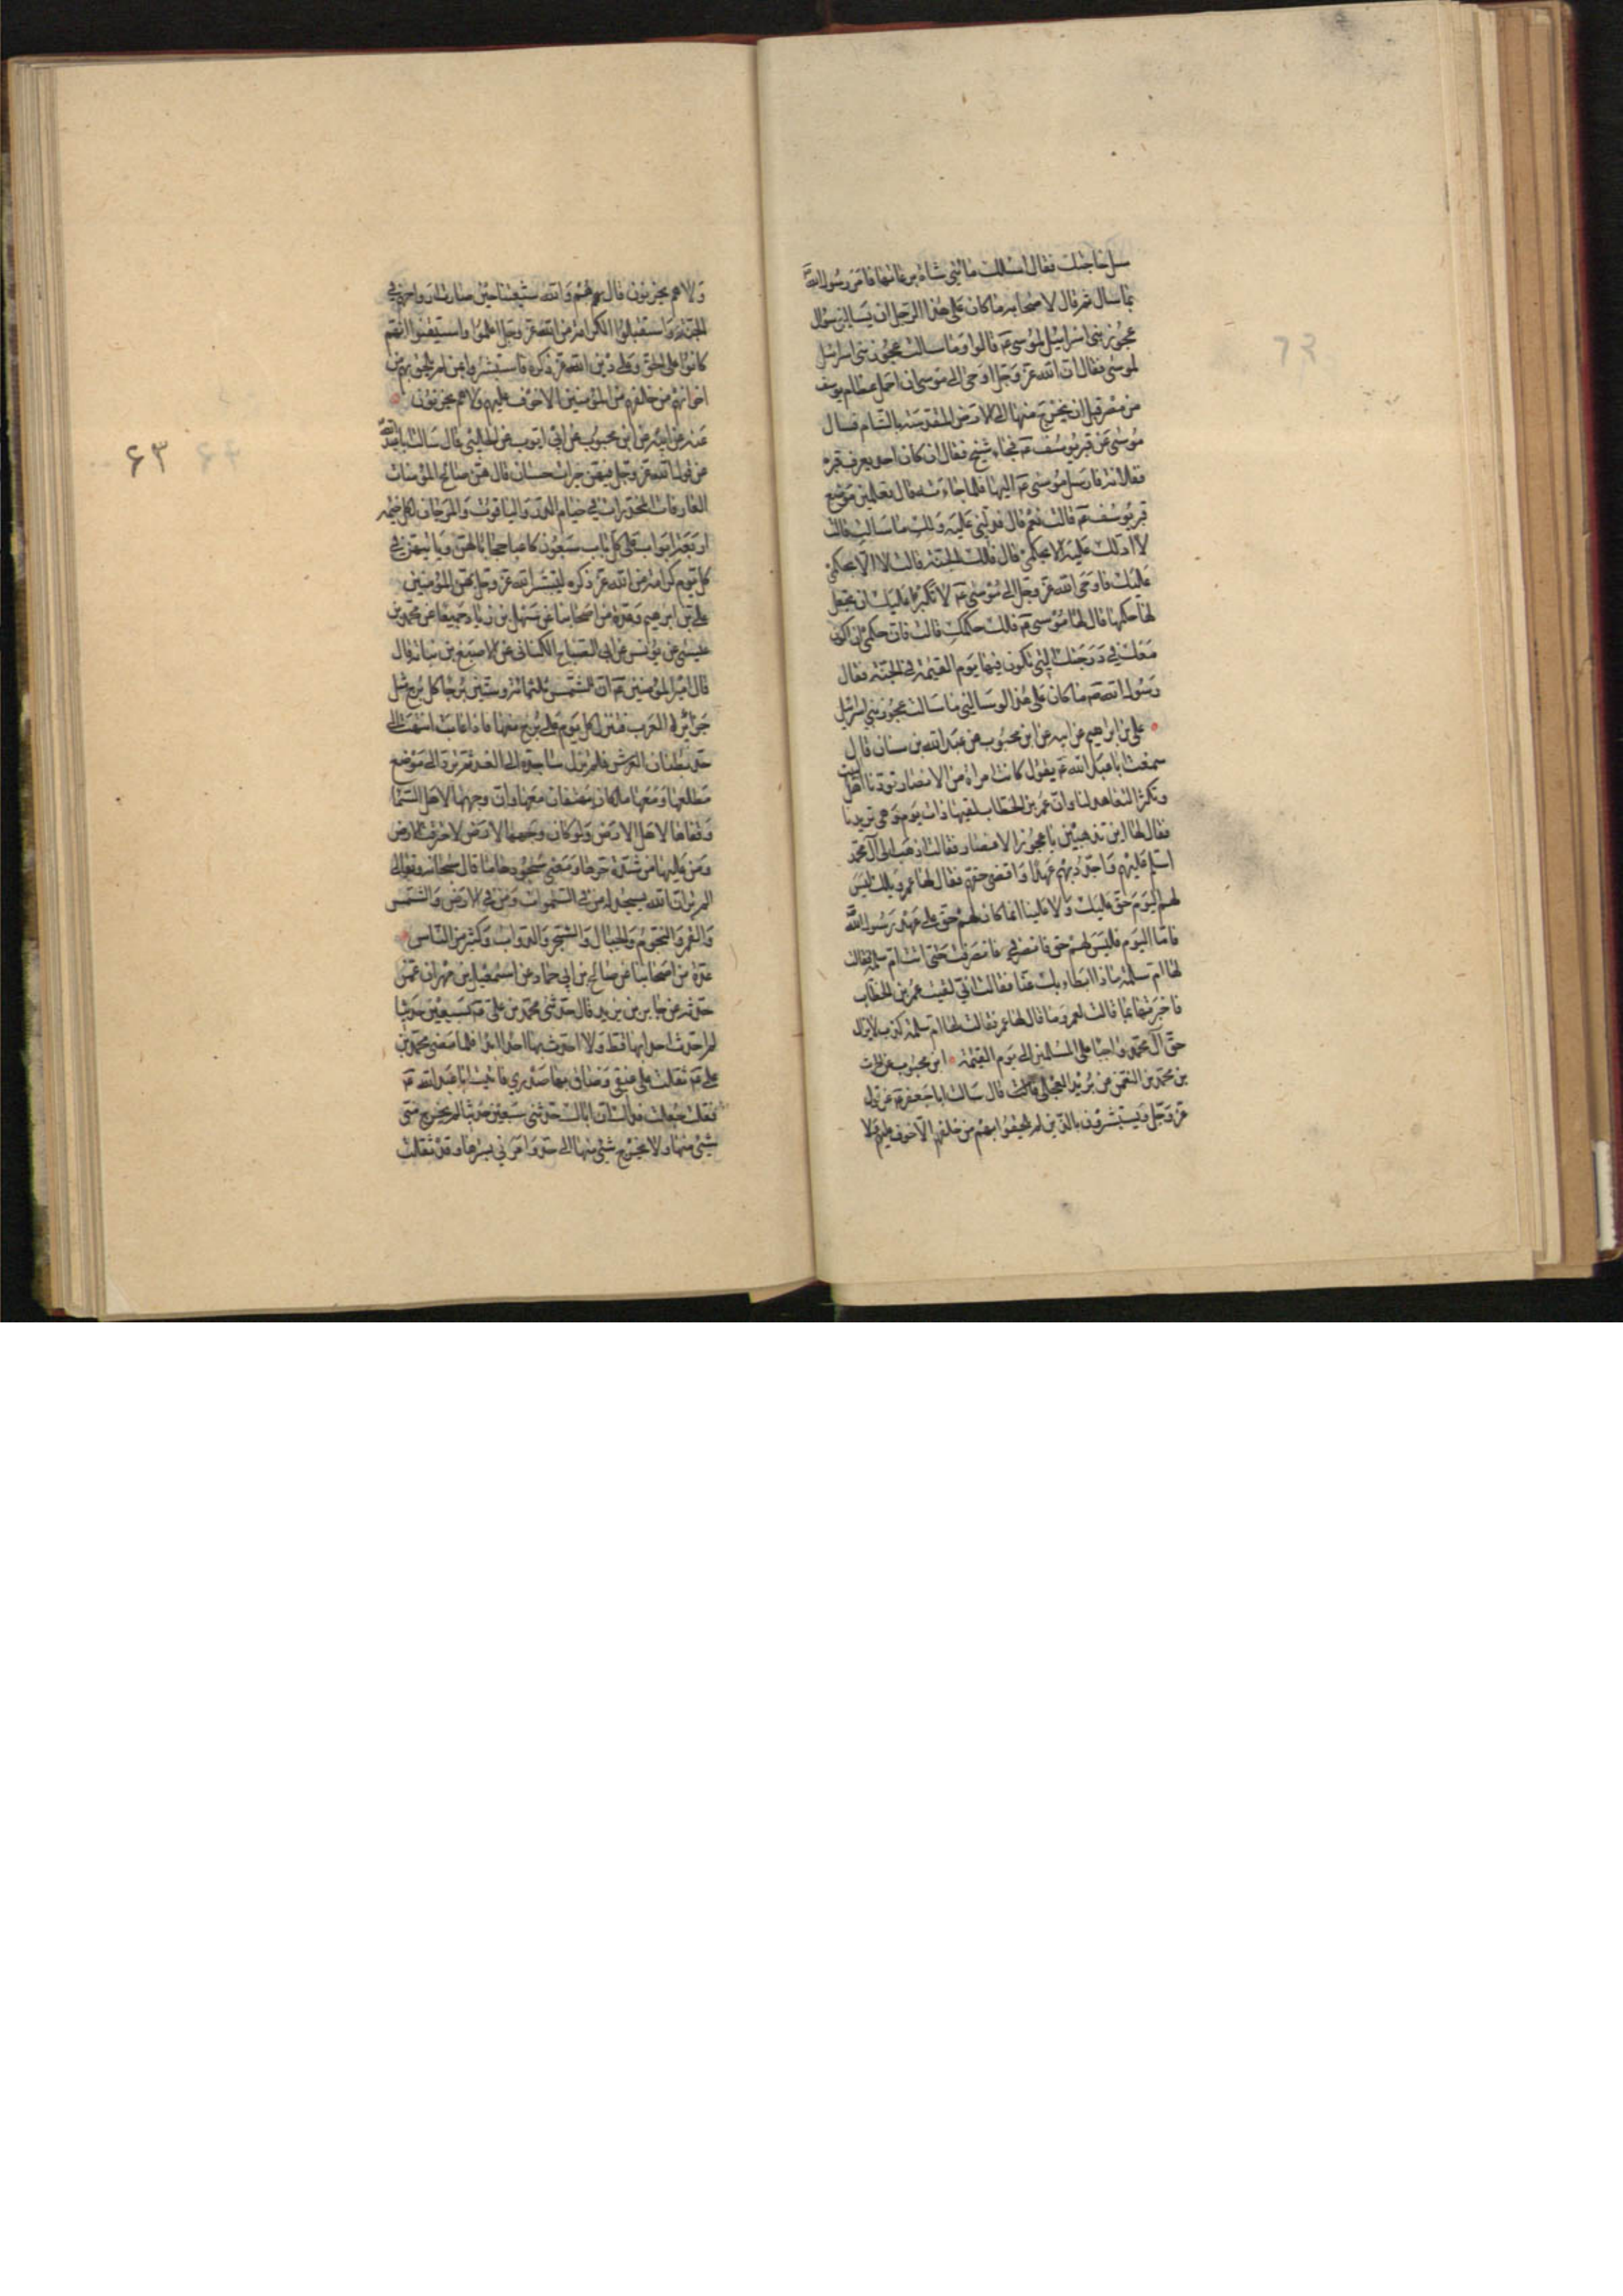 سل حاجتك فقال اسالك مائتى شاة برعاتها فامر رسول الله
بما سال ثم قال لاصحابه ما كان على هذا الرجل ان يسالنى سؤال
عجوز بنى اسرائيل لموسى عم قالوا وما سالت عجوز بنى اسرائيل
لموسى فقال ان الله عز وجل اوحى الى موسى ان احمل عظام يوسف
من مصر قبل ان تخرج منها الى الارض المقدسة بالشام فسال
موسى عن قبر يوسف عم فجاءه شيخ فقال ان كان احد يعرف قبره
ففلانة فارسل موسى عم اليها فلما جاءته قال تعلمين موضع
قبر يوسف عم قالت نعم قال فدلينى عليه ولك ما سالت قالت
لا ادلك عليه الا بحكمى قال فلك الجنة قالت لا الا بحكمى
عليك فاوحى الله عز وجل الى موسى عم لا تكبر عليك ان تجعل
لها حكمها قال لها موسى عم فلك حكمك قالت فان حكمى ان اكون
معك فى درجتك التى تكون فيها يوم القيمة فى الجنة فقال
رسول الله صم ما كان على هذا لو سالنى ما سالت عجوز بنى اسرائيل
على بن ابرهيم عن ابيه عن ابن محبوب عن عبد الله بن سنان قال
سمعت ابا عبد الله عم يقول كانت امراة من الانصار تودنا اهل البيت
وتكثر التعاهد لنا وان عمر بن الخطاب لقيها ذات يوم وهى تريدنا
فقال لها اين تذهبين يا عجوز الانصار فقالت اذهب الى آل محمد
اسلم عليهم واجدد بهم عهدا واقضى حقهم فقال لها عمر ويلك ليس
لهم اليوم حق عليك ولا علينا انما كان لهم حق على عهد رسول الله
فاما اليوم فليس لهم حق فانصرفى فانصرفت حتى اتت ام سلمة فقالت
لها ام سلمة ماذا ابطا بك عنا فقالت انى لقيت عمر بن الخطاب
فاخبرتها بما قالت لعمر وما قال لها عمر فقالت لها ام سلمة كذب لا يزال
حق آل محمد واجبا على المسلمين الى يوم القيمة ابن محبوب عن الحرث
بن محمد بن النعمن عن بريد العجلى قال سالت ابا جعفر عم عن قول
عز وجل ويستبشرون بالذين لم يلحقوا بهم من خلفهم الا خوف عليهم ولا
ولا هم يحزنون قال هم والله شيعتنا حين صارت ارواحهم فى
الجنة واستقبلوا الكرامة من الله عز وجل علموا واستيقنوا انهم
كانوا على الحق وعلى دين الله عز ذكره فاستبشروا بمن لم يلحق بهم من
اخوانهم من خلفهم من المؤمنين الا خوف عليهم ولا هم يحزنون
عنه عن ابيه عن ابن محبوب عن ابى ايوب عن الحلبى قال سالت ابا عبد الله
عن قول الله عز وجل فيهن خيرات حسان قال هن صالح المؤمنات
العارفات المخدرات فى خيام الدر والياقوت والمرجان لكل خيمة
اربعة ابواب على كل باب سبعون كاعبا حجابا لهن وياتيهن فى
كل يوم كرامة من الله عز ذكره ليبشر الله عز وجل بهن المؤمنين
على بن ابرهيم وعدة من اصحابنا عن سهل بن زياد جميعا عن محمد بن
عيسى عن يونس عن ابى الصباح الكنانى عن الاصبغ بن نباتة قال
قال امير المؤمنين عم ان للشمس ثلثمائة وستين برجا كل برج مثل
جزيرة العرب فتنزل كل يوم على برج منها فاذا غابت انتهت الى
حد بطنان العرش فلم تزل ساجدة الى الغد ثم ترد الى موضع
مطلعها ومعها ملكان يهتفان معها وان وجهها لاهل السما
وقفاها لاهل الارض ولو كان وجهها لاهل الارض لاحرقت الارض
ومن عليها من شدة حرها ومعنى سجودها ما قال سبحانه وتعالى
الم تر ان الله يسجد له من فى السموات ومن فى الارض والشمس
والقمر والنجوم والجبال والشجر والدواب وكثير من الناس
عدة من اصحابنا عن صالح بن ابى حماد عن اسمعيل بن مهران عمن
حدثه عن جابر بن يزيد قال حدثنى محمد بن على عم بسبعين حديثا
لم احدث احدا بها قط ولا احدث بها احدا ابدا فلما مضى محمد بن
على عم ثقلت على عنقى وضاق بها صدرى فاتيت ابا عبد الله عم
فقلت جعلت فداك ان اباك حدثنى سبعين حديثا لم يخرج منى
شىء منها ولا يخرج شىء منها الى احد وامرنى بسترها وقد ثقلت
۶۳